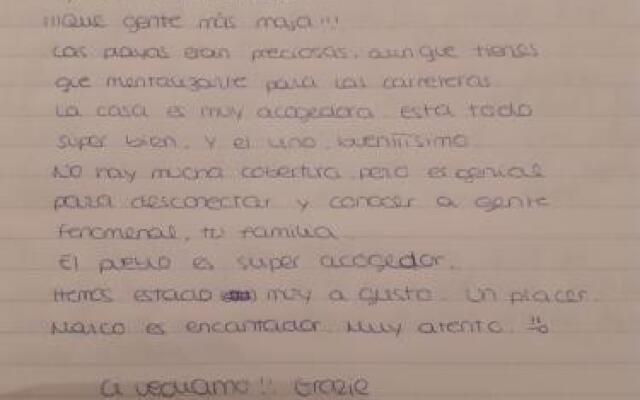 ¡¡¡Que gente más maja!!!
Las playas eran preciosas, aunque tienes
que mentalizarte para las carreteras.
La casa es muy acogedora esta todo
super bien, y el vino buenííísimo.
No hay mucha cobertura, pero es genial
para desconectar y conocer a gente
fenomenal, tu familia.
El pueblo es super acogedor.
Hemos estado muy a gusto. Un placer.
Marco es encantador. Muy atento.
Ci vediamo!! Grazie